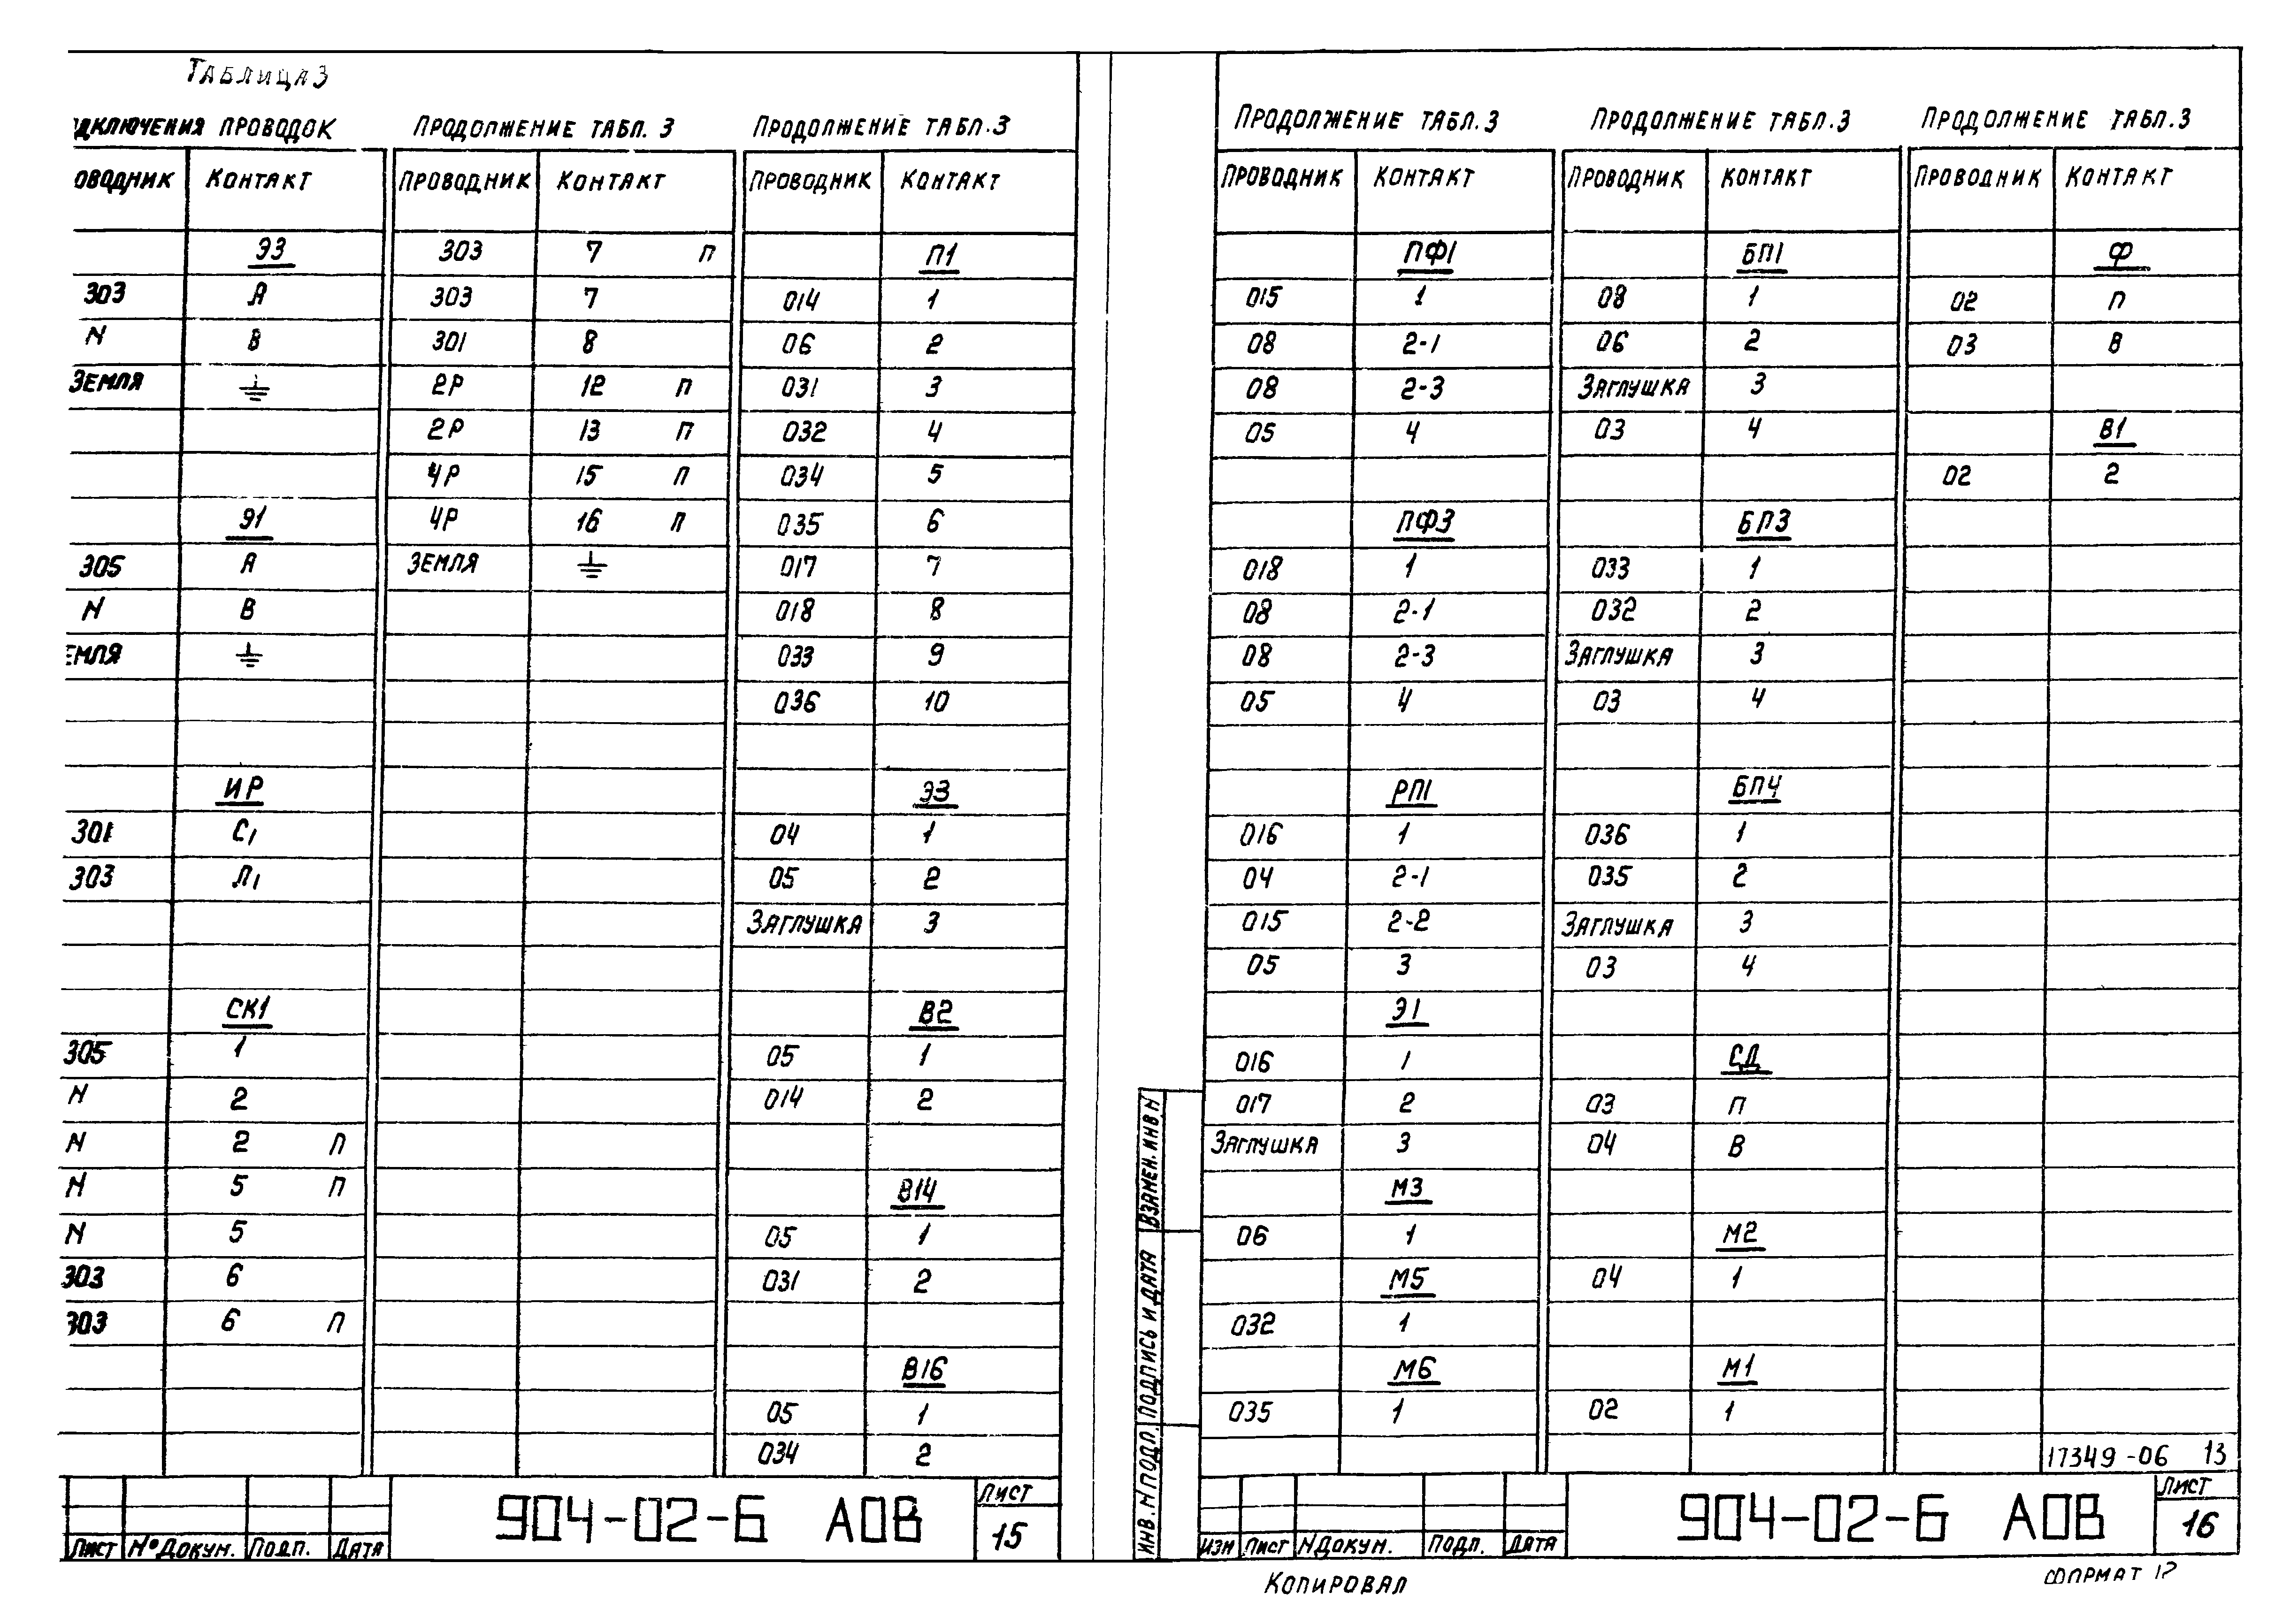 Таблица 3
дключения проводок
оводник Контакт
Э3
303 А
N В
Земля ⏚
Э1
305 А
N В
емля ⏚
ИР
301 С1
303 Л1
СК1
305 1
N 2
N 2 П
N 5 П
N 5
303 6
303 6 П
Продолжение табл. 3
Проводник Контакт
303 7 П
303 7
301 8
2Р 12 П
2Р 13 П
4Р 15 П
4Р 16 П
Земля ⏚
Продолжение табл.3
Проводник Контакт
П1
014 1
06 2
031 3
032 4
034 5
035 6
017 7
018 8
033 9
036 10
Э3
04 1
05 2
Заглушка 3
В2
05 1
014 2
В14
05 1
031 2
В16
05 1
034 2
Лист № докум. Подп. Дата
904-02-Б АОВ
Лист
15
Продолжение табл.3
Проводник Контакт
ПФ1
015 1
08 2-1
08 2-3
05 4
ПФ3
018 1
08 2-1
08 2-3
05 4
РП1
016 1
04 2-1
015 2-2
05 3
Э1
016 1
017 2
Заглушка 3
М3
06 1
М5
032 1
М6
035 1
Продолжение табл.3
Проводник Контакт
БП1
08 1
06 2
Заглушка 3
03 4
БП3
033 1
032 2
Заглушка 3
03 4
БП4
036 1
035 2
Заглушка 3
03 4
СД
03 П
04 В
М2
04 1
М1
02 1
Продолжение табл.3
Проводник Контакт
Ф
02 П
03 В
В1
02 2
17349-06 13
Взамен. инв N
Подпись и дата
Инв. N подл.
Изм Лист N докум. Подп. Дата
904-02-Б АОВ
Лист
16
Копировал
Формат 12